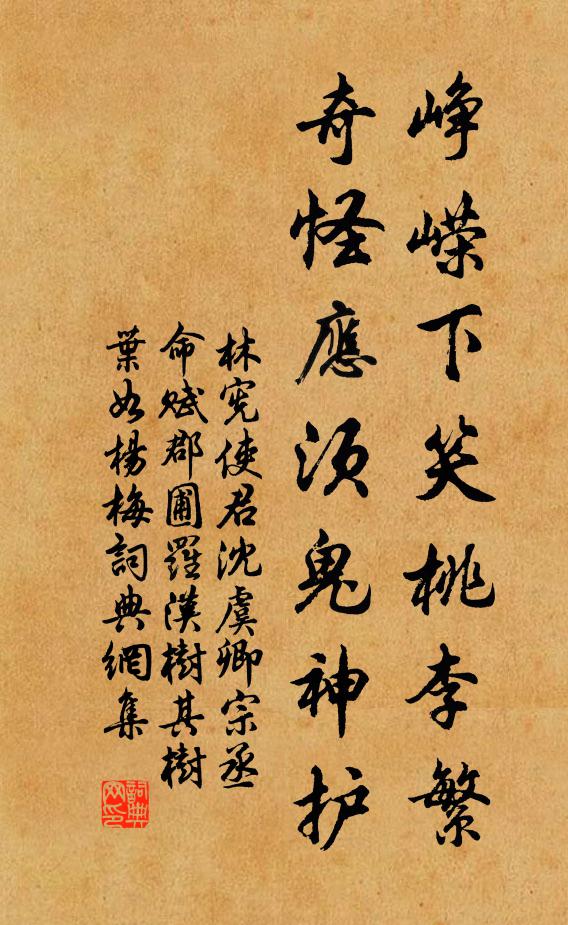 峥嵘下笑桃李繁
奇怪應須鬼神护
林宪使君沈虞卿宗丞
命赋郡圃羅漢樹其樹
葉如楊梅詞典網集
詞典
网印